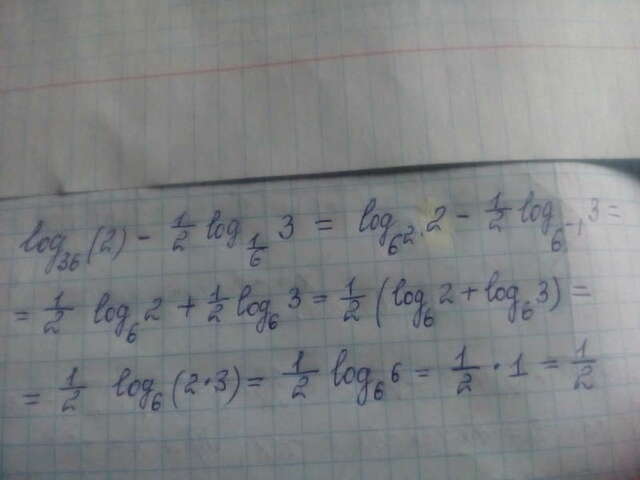 log₃₆(2) - 1/2 log_{1/6} 3 = log_{6²} 2 - 1/2 log_{6⁻¹} 3 =
= 1/2 log₆ 2 + 1/2 log₆ 3 = 1/2 (log₆ 2 + log₆ 3) =
= 1/2 log₆ (2·3) = 1/2 log₆ 6 = 1/2 · 1 = 1/2